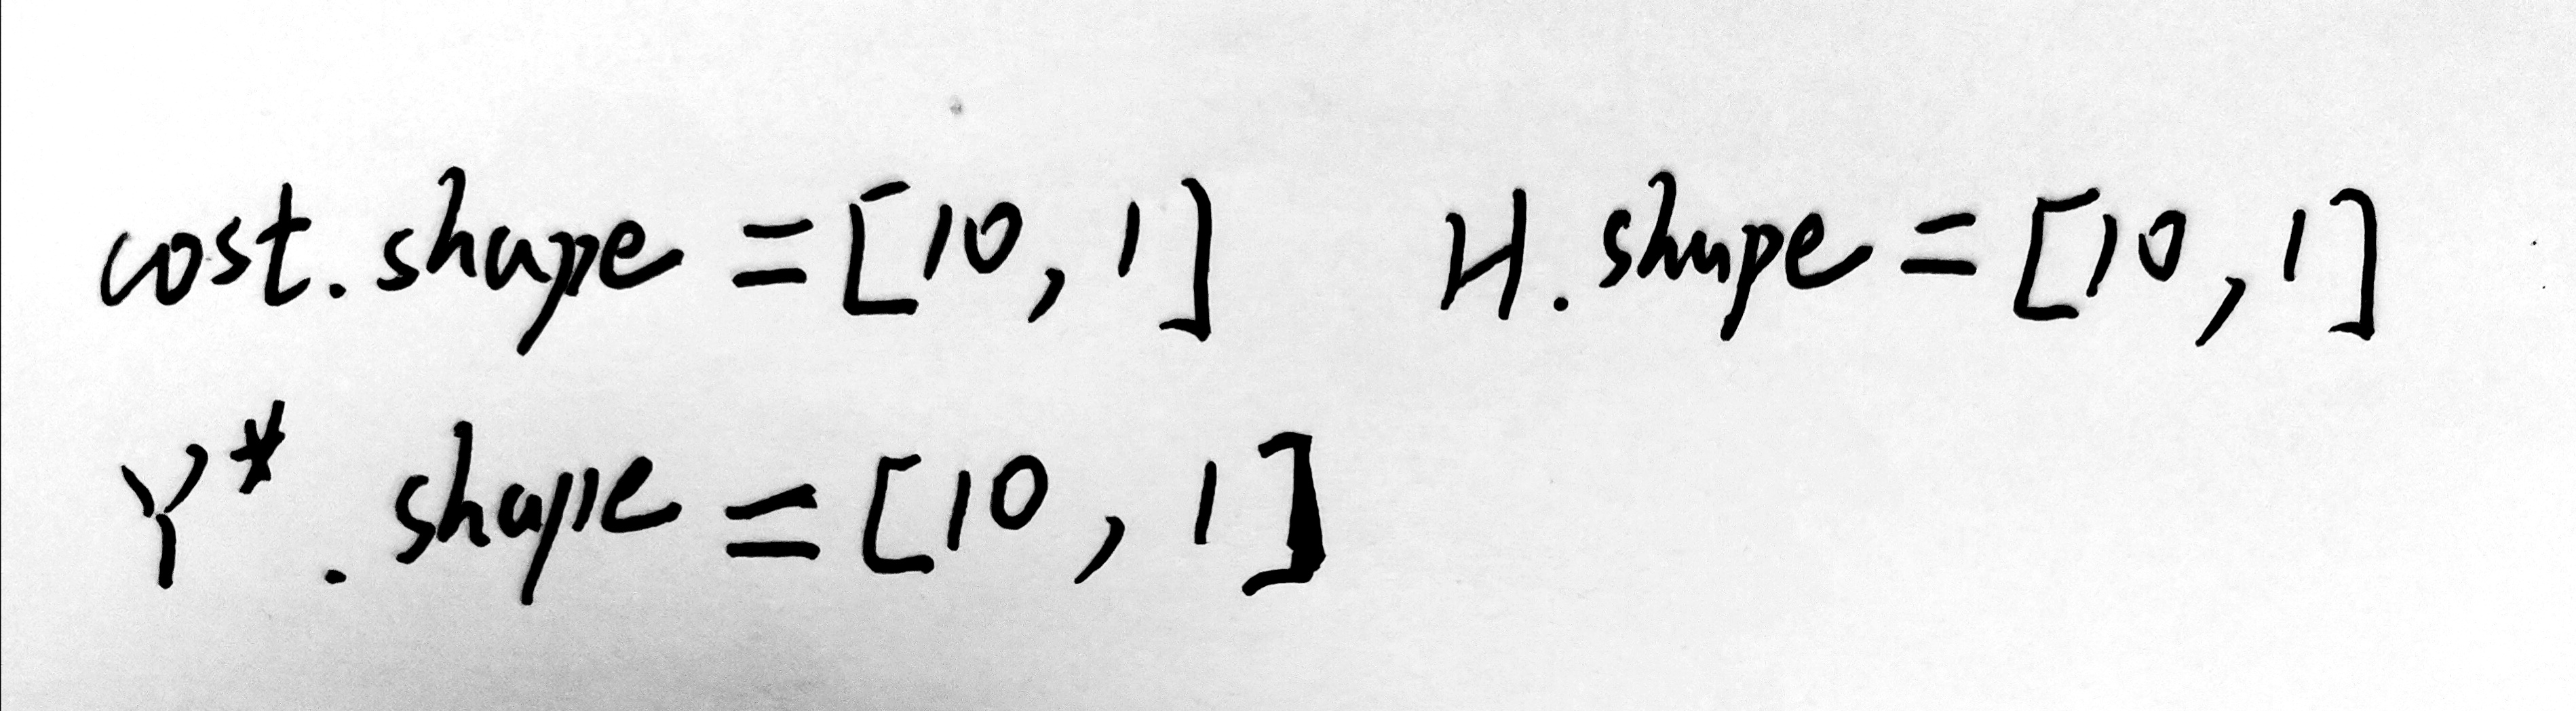 cost. shape = [10, 1] H. shape = [10, 1]
Y*. shape = [10, 1]